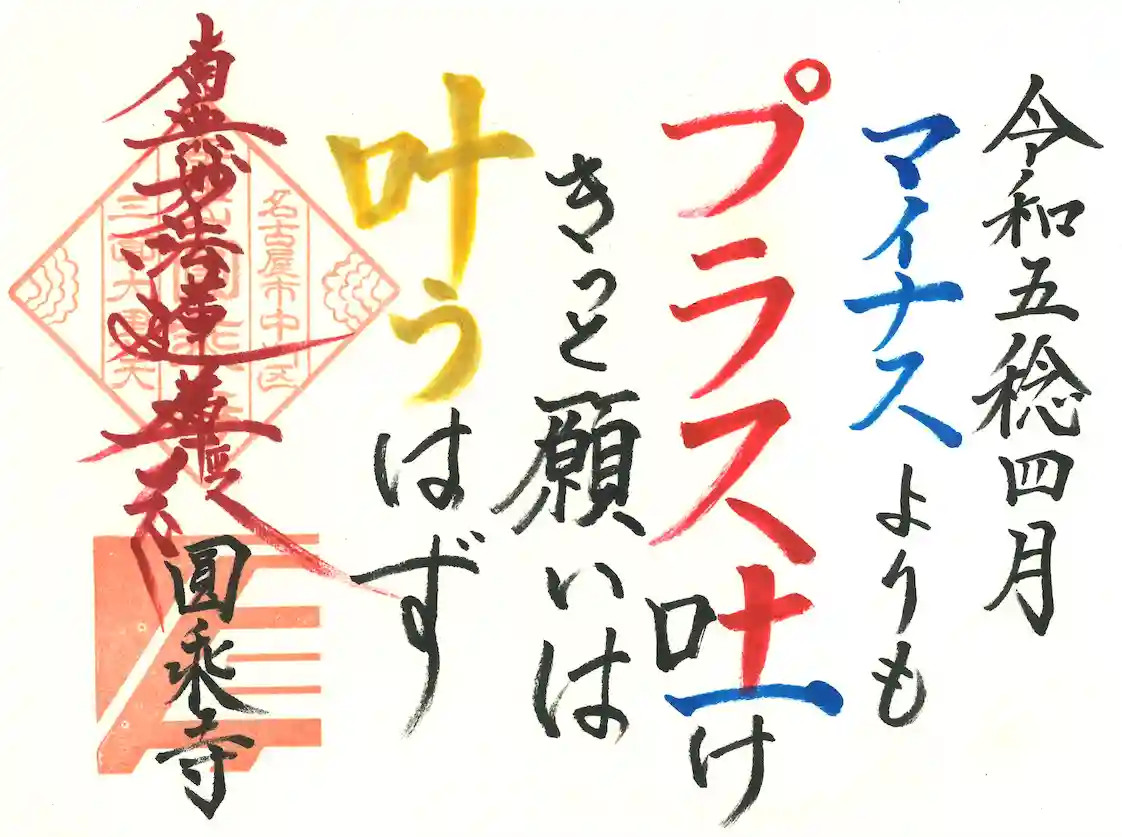 令和五稔四月
マイナスよりも
プラス吐け
きっと願いは
叶うはず
南無妙法蓮華経
圓乘寺
名古屋市中川区